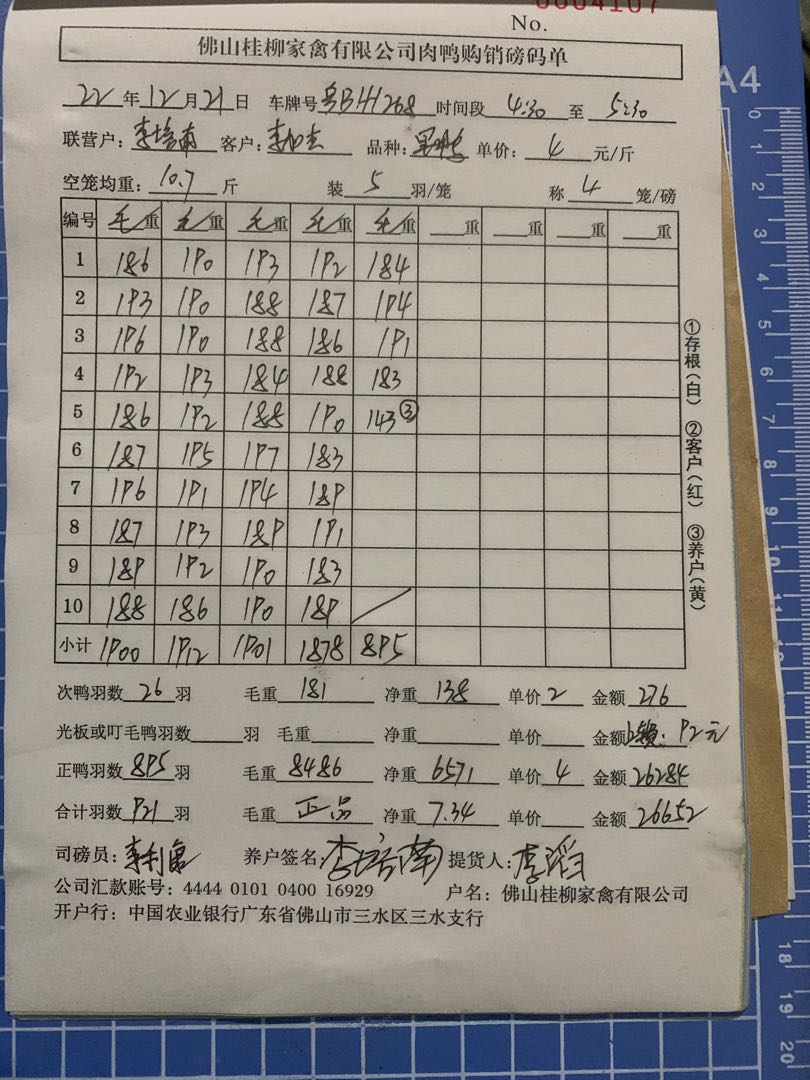 0004107
No.
佛山桂柳家禽有限公司肉鸭购销磅码单
22年12月21日 车牌号粤BH1268 时间段 4:30 至 5:30
联营户:李培南 客户:李加志 品种: 单价: 4 元/斤
空笼均重: 10.7 斤 装 5 羽/笼 称 4 笼/磅
编号 毛重 毛重 毛重 毛重 毛重 重 重 重 重
1 186 190 193 192 184
2 193 190 188 187 194
3 196 190 188 186 191
4 192 193 184 188 183
5 186 192 188 190 143③
6 187 195 197 183
7 196 191 194 189
8 187 193 189 191
9 189 192 190 183
10 188 186 190 189
小计 1900 1912 1901 1878 895
①存根(白) ②客户(红) ③养户(黄)
次鸭羽数 26 羽 毛重 181 净重 138 单价 2 金额 276
光板或叮毛鸭羽数 羽 毛重 净重 单价 金额 92元
正鸭羽数 895 羽 毛重 8486 净重 6571 单价 4 金额 26284
合计羽数 921 羽 毛重 正品 净重 7.34 单价 金额 26652
司磅员:李利富 养户签名:李培南 提货人:李滔
公司汇款账号:4444 0101 0400 16929 户名:佛山桂柳家禽有限公司
开户行:中国农业银行广东省佛山市三水区三水支行
A4
0
1
2
3
4
5
6
7
8
9
10
11
12
13
14
15
16
17
18
19
20